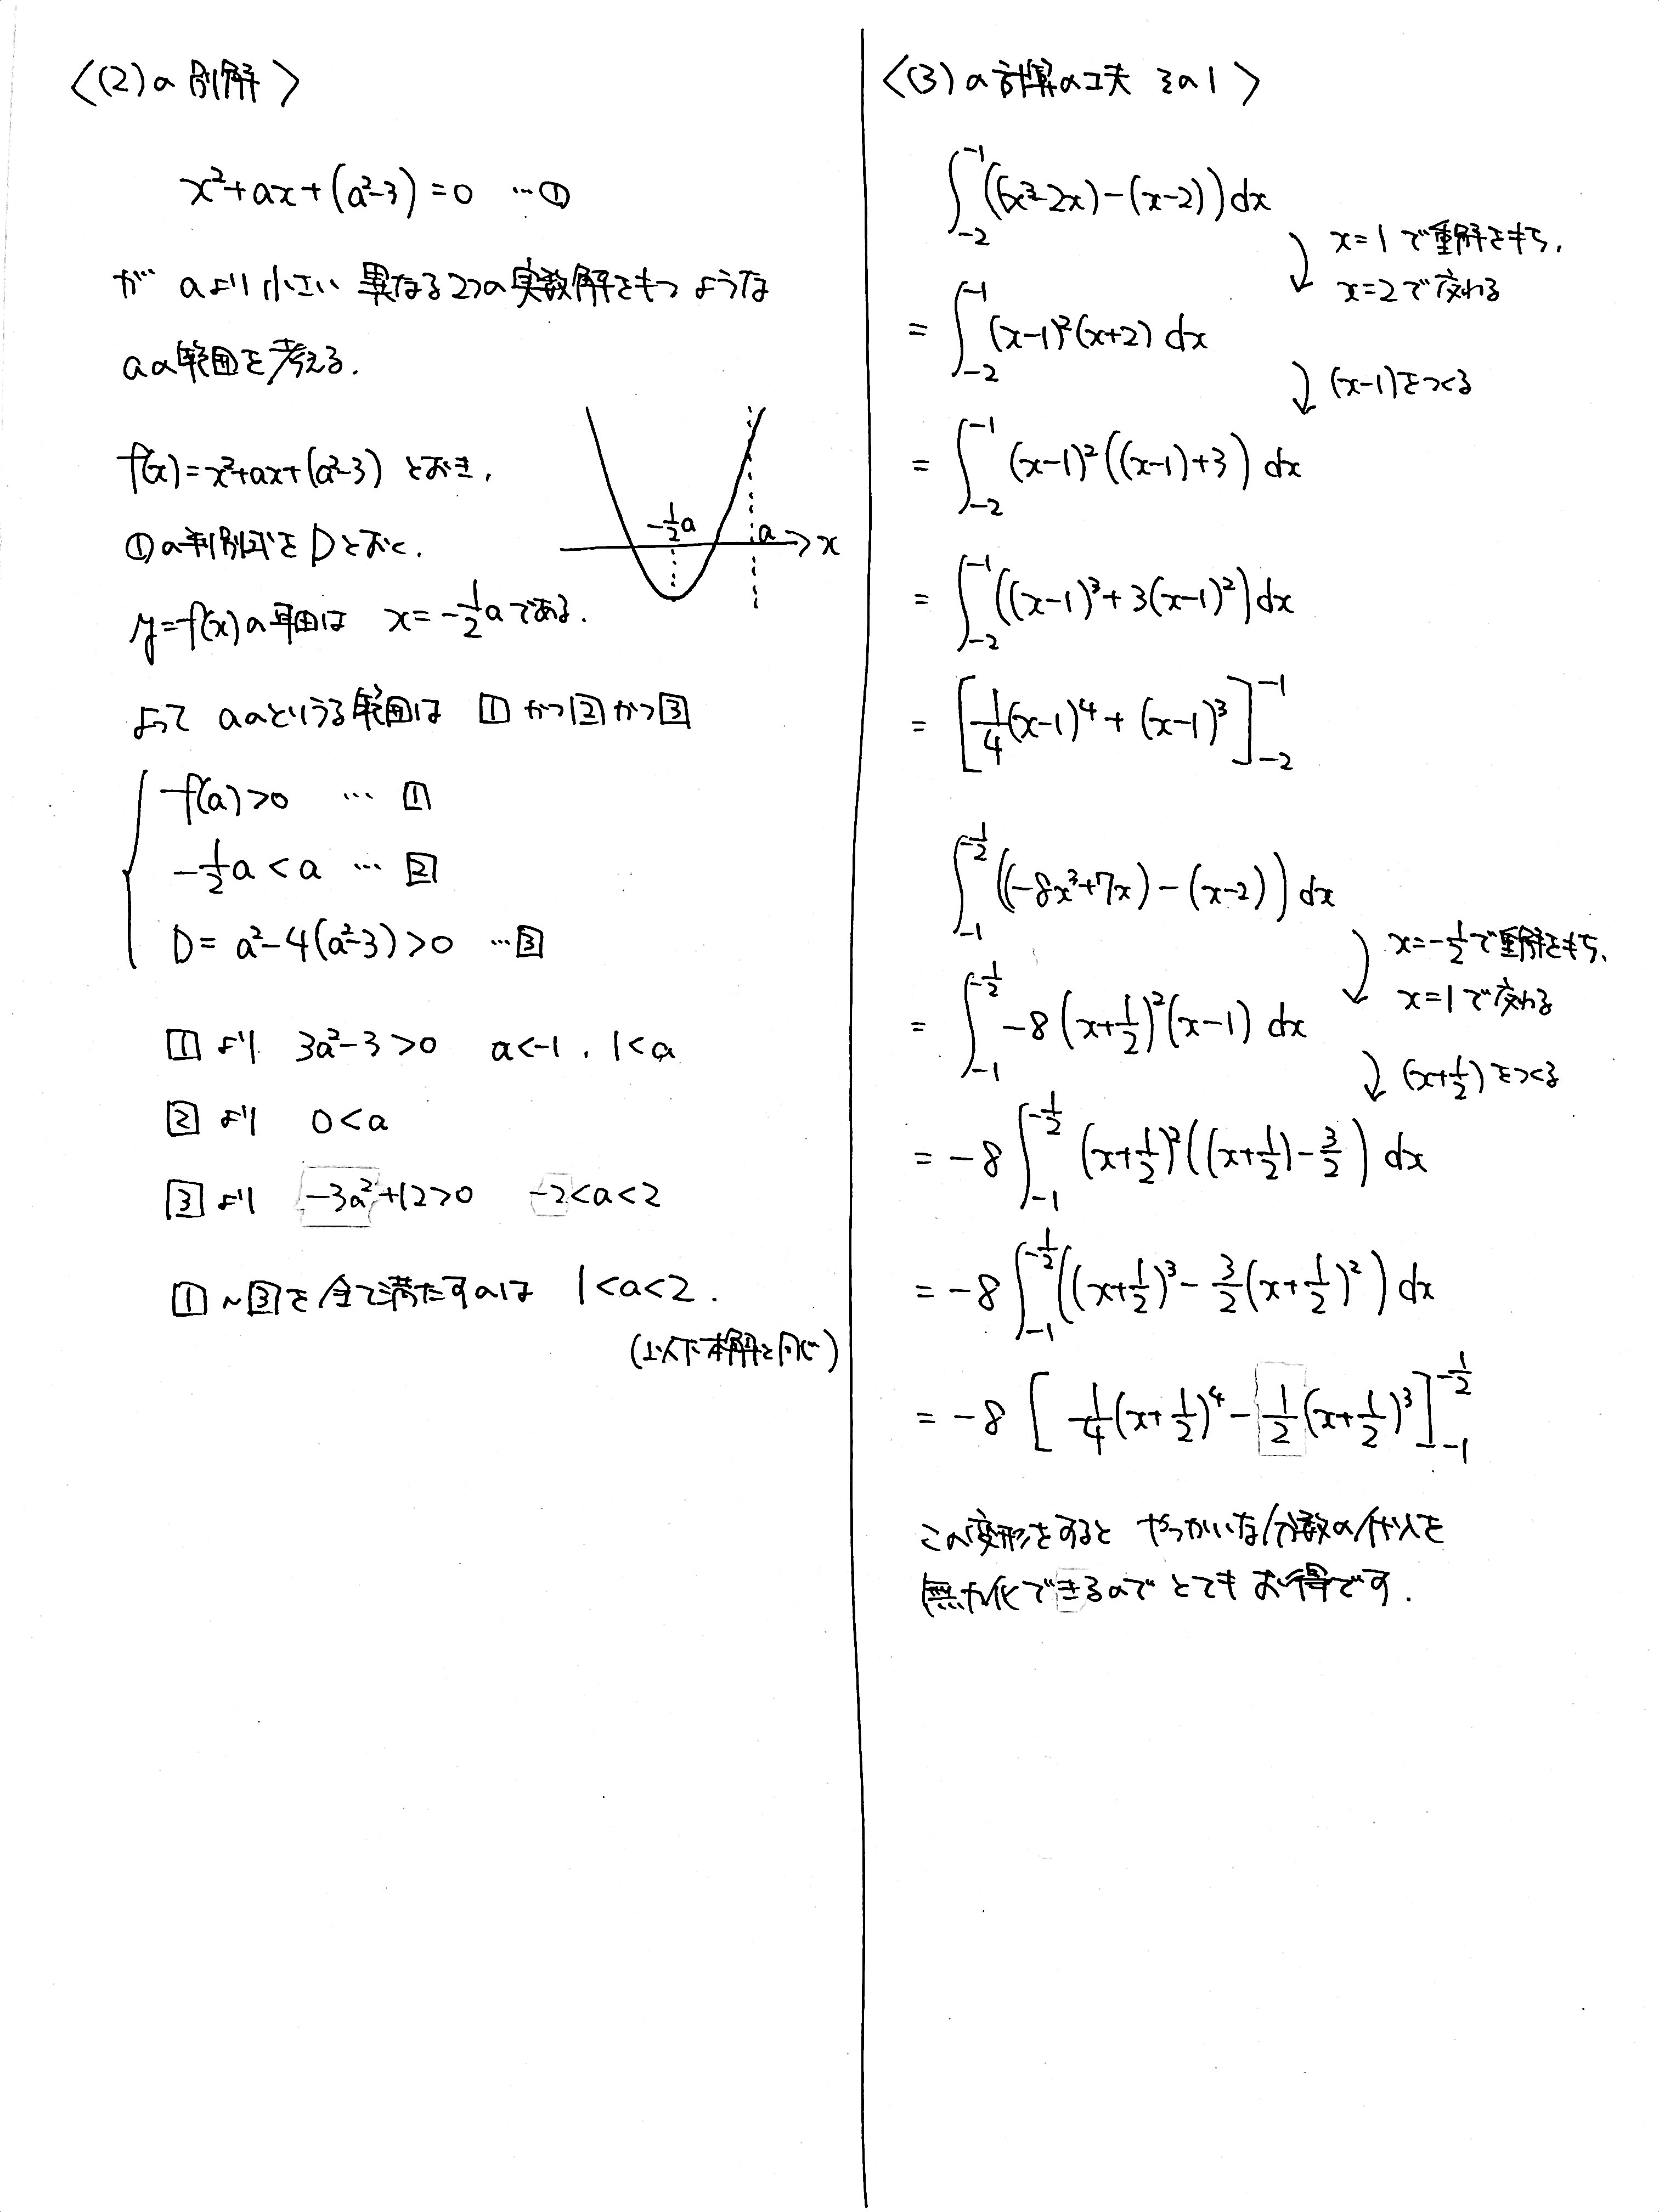 〈(2)の別解〉
x²+ax+(a²-3)=0 …①
が aより小さい 異なる2つの実数解をもつ ような
aの範囲を考える.
f(x)=x²+ax+(a²-3) とおき,
①の判別式を Dとおく.
y=f(x)の軸は x=-1/2aである.
-1/2a
a
x
よって aのとりうる範囲は [1]かつ[2]かつ[3]
f(a)>0 … [1]
-1/2a<a … [2]
D=a²-4(a²-3)>0 …[3]
[1]より 3a²-3>0 a<-1, 1<a
[2]より 0<a
[3]より -3a²+12>0 -2<a<2
[1]~[3]を全て満たすaは 1<a<2.
(以下本解と同じ)
〈(3)の計算の工夫 その1〉
∫_{-2}^{-1}((x³-2x)-(x-2))dx
x=1で重解をもち,
x=2で交わる
=∫_{-2}^{-1}(x-1)²(x+2)dx
(x-1)をつくる
=∫_{-2}^{-1}(x-1)²((x-1)+3)dx
=∫_{-2}^{-1}((x-1)³+3(x-1)²)dx
=[1/4(x-1)⁴+(x-1)³]_{-2}^{-1}
∫_{-1}^{-1/2}((-8x³+7x)-(x-2))dx
x=-1/2で重解をもち,
x=1で交わる
=∫_{-1}^{-1/2}-8(x+1/2)²(x-1)dx
(x+1/2)をつくる
=-8∫_{-1}^{-1/2}(x+1/2)²((x+1/2)-3/2)dx
=-8∫_{-1}^{-1/2}((x+1/2)³-3/2(x+1/2)²)dx
=-8[1/4(x+1/2)⁴-1/2(x+1/2)³]_{-1}^{-1/2}
この変形をすると やっかいな分数の代入を
無力化できるので とてもお得です.